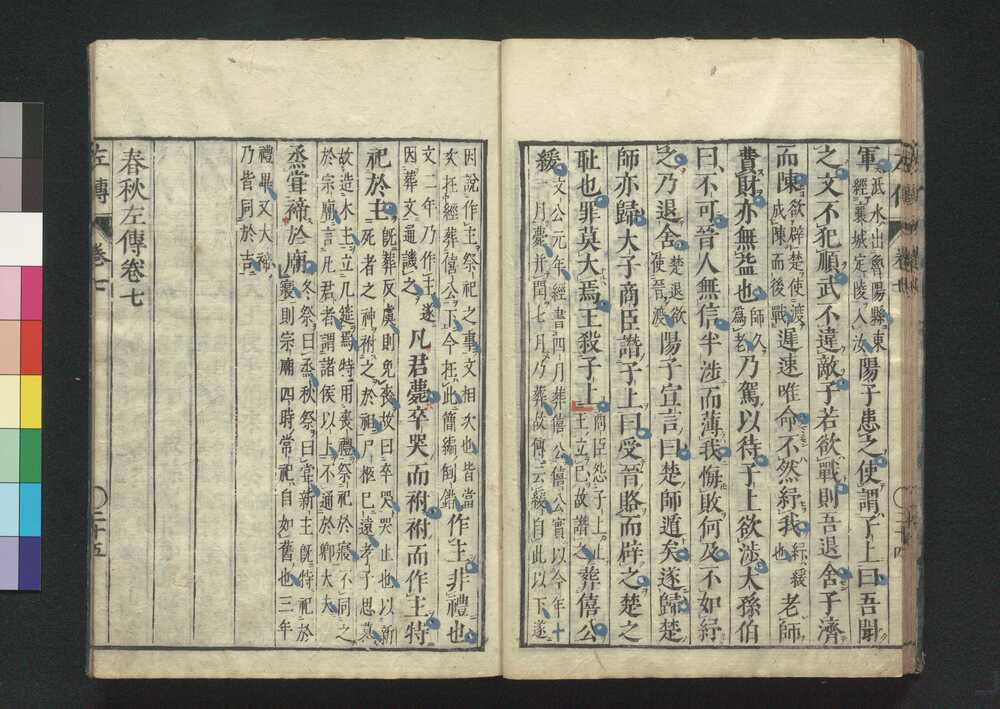 軍泜水出魯陽縣東經襄城定陵入汝陽子患之使謂子上曰吾聞
之文不犯順武不違敵子若欲戰則吾退舍子濟
而陳欲辟楚使渡成陳而後戰遲速唯命不然紓我紓緩也老師
費財亦無益也師久爲老乃駕以待子上欲涉大孫伯
曰不可晉人無信半涉而薄我悔敗何及不如紓
之乃退舍楚退欲使晉渡陽子宣言曰楚師遁矣遂歸楚
師亦歸大子商臣譖子上曰受晉賂而辟之楚之
恥也罪莫大焉王殺子上商臣怨子上止王立已故譖之葬僖公
緩文公元年經書四月葬僖公僖公實以今年十一月薨并閏七月乃葬故傳云緩自此以下遂
因說作主祭祀之事文相次也皆當次在經葬僖公下今在此簡編倒錯作主非禮也
文二年乃作主遂因葬文通譏之凡君薨卒哭而祔祔而作主特
祀於主既葬反虞則免喪故曰卒哭哭止也以新死者之神祔之於祖尸柩已遠孝子思慕
故造木主立几筵焉特用喪禮祭祀於寢不同之於宗廟言凡君者謂諸侯以上不通於卿大夫
烝嘗禘於廟冬祭曰烝秋祭曰嘗新主既特祀於寢則宗廟四時常祀自如舊也三年
禮畢又大禘乃皆同於吉
春秋左傳卷七
左傳
卷七
二十五